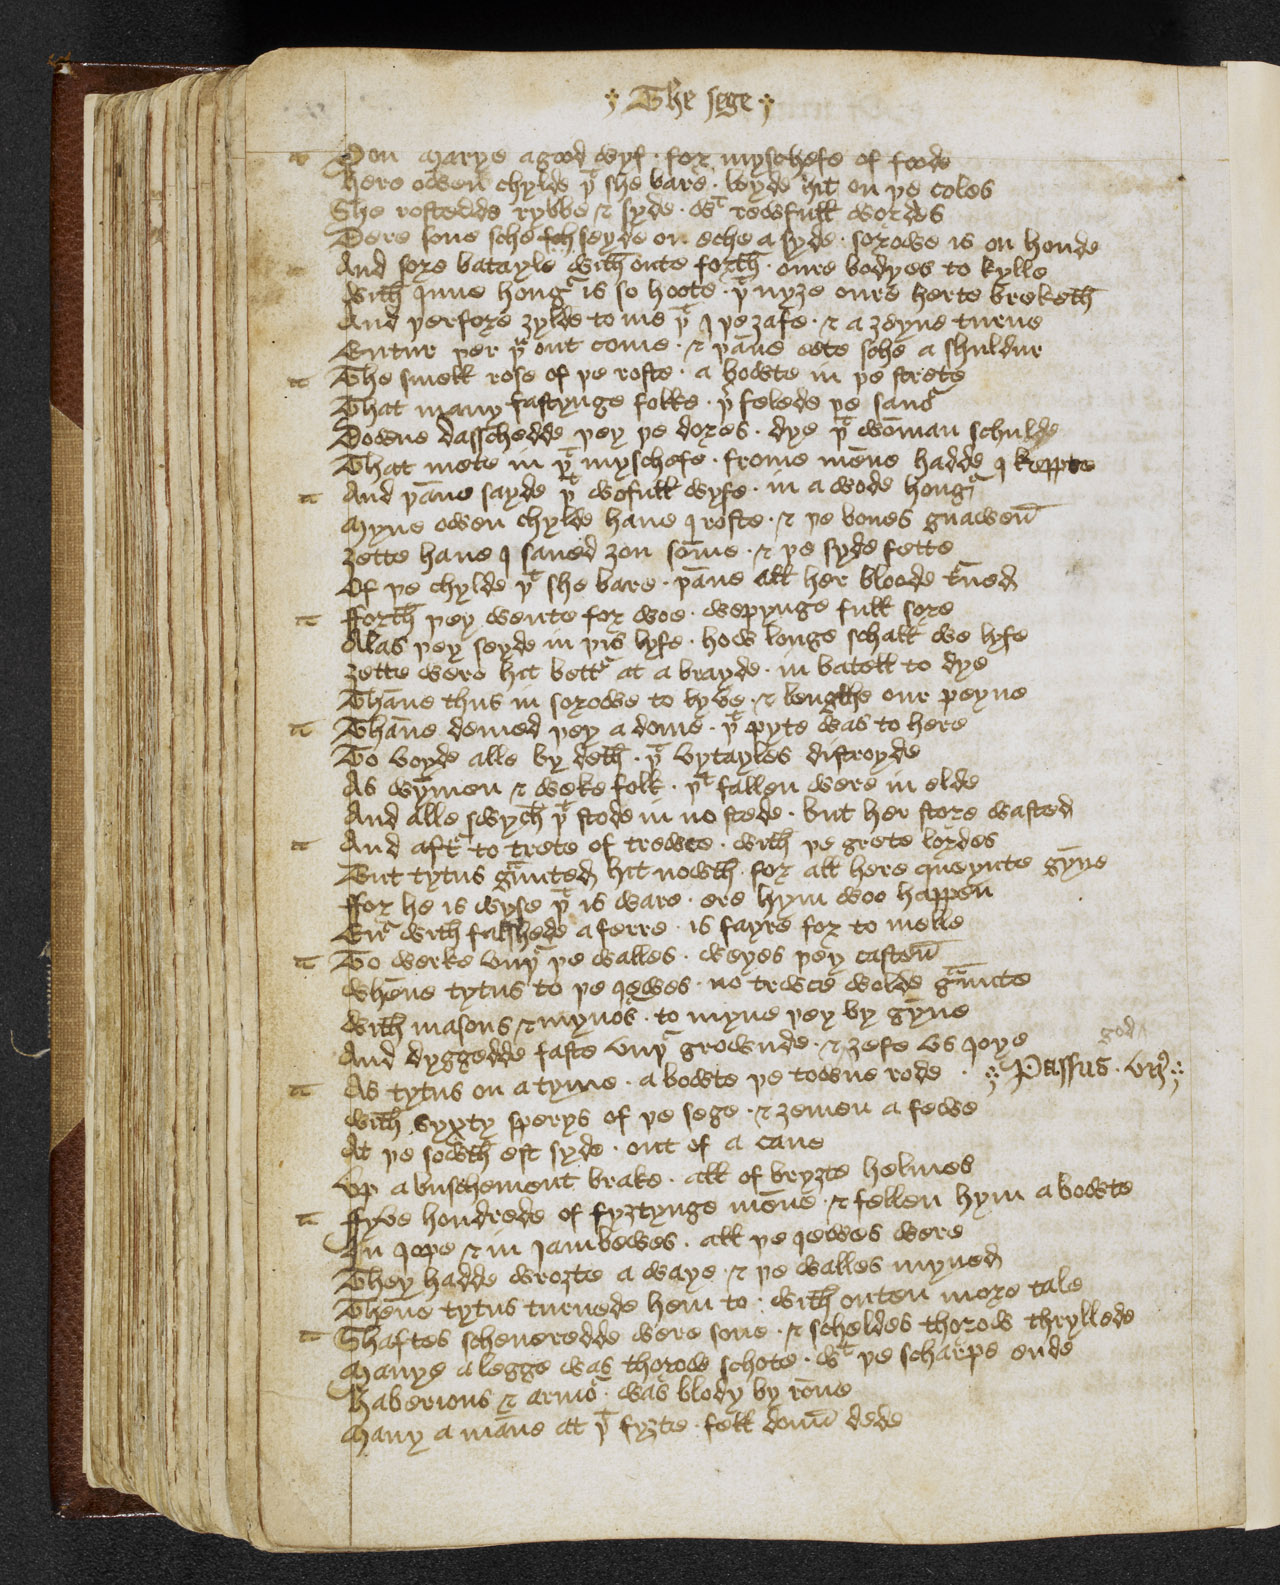 The sege
Don Marye a good wyf · for myschefe of foode
Here owen chylde þt she bare · leyde hit on þe coles
She rostedde rybbe & syde · wt rewfull wordes
Dere sone sche seyde on eche a syde · sorowe is on honde
And sore batayle with oute forth · oure bodyes to kylle
With inne hongr is so hoote · þt nyȝe oure herte breketh
And þerfore ȝylde to me þt I þe ȝafe · & a ȝeyne turne
Entur þer þu out come · & þāne eete sche a shuldur
The smell rose of þe roste · a bowte in þe strete
That many fastynge folke · þt felede þe sauor
Downe dasschedde þey þe dores · dye þt wōman schulde
That mete in þt myschefe · frome mēne hadde I keppte
And þāne sayde þt wofull wyfe · in a wode hongr
Myne owen chylde haue I roste · & þe bones gnawen
ȝette haue I saued ȝou sōme · & þe syde fette
Of þe chylde þt she bare · þāne all her bloode tūned
fforth þey wente for woe · wepynge full sore
Alas þey seyde in þis lyfe · how longe schall we lyfe
ȝette were hit bettr at a brayde · in batell to dye
Thāne thus in sorowe to lyve · & lengthe our peyne
Thāne demed þey a dome · þt pyte was to here
To voyde alle by deth · þt vytayles distroyde
As wȳmen & weke folk · þt fallen were in elde
And alle swych þt stode in no stede · but her store wasted
And aftr to trete of trewce · with þe grete lordes
But tytus graunted hit nowth · for all here queynte gȳne
ffor he is wyse þt is ware · ere hym woo happen
Eur with falshede a ferre · is fayre for to melle
To werke vnþr þe walles · weyes þey casten
Whēne tytus to þe Iewes · no trwce wolde graunte
With masons & mynors · to myne þey by gȳne
And dyggedde faste vnþr grownde · & ȝefe vs Ioye
god
As tytus on a tyme · a bowte þe towne rode · Passus · vijs
With syxty sperys of þe sege · & ȝemen a fewe
At þe sowth est syde · out of a caue
Vp a buschement brake · all of bryȝte helmes
ffyve hondrede of fyȝtynge mēne · & fellen hym a bowte
In Iope & in Iambewes · all þe Iewes were
They hadde wroȝte a waye · & þe walles myned
Thēne tytus turnede hem to · with outen more tale
Shaftes scheueredde were sone · & scheldes thorow thryllede
Manye a legge was thorow schote · wt þe scharpe ende
Haberions & armor · was blody by rōne
Many a māne at þt fyȝte · fell doun dede